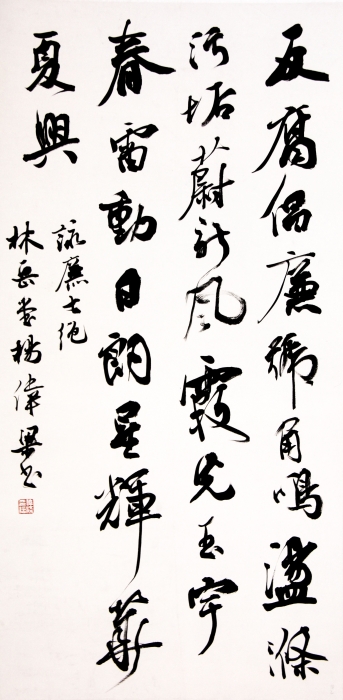 反腐倡廉號角鳴盪滌
污垢蔚新风霞光玉宇
春雷動日朗星輝華
夏興
詠廉七绝
林岳楊偉梁书